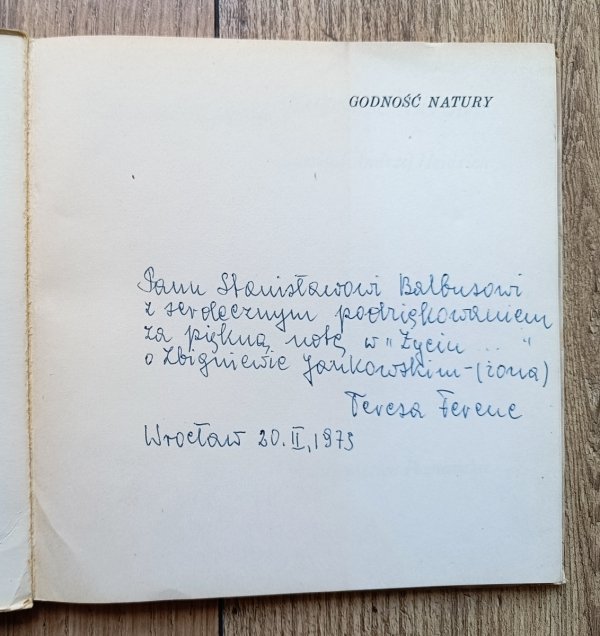 GODNOŚĆ NATURY
Panu Stanisławowi Balbusowi
z serdecznym podziękowaniem
za piękną notę w „Życiu ... "
o Zbigniewie Jankowskim - (żona)
Teresa Ferenc
Wrocław 20. II, 1973